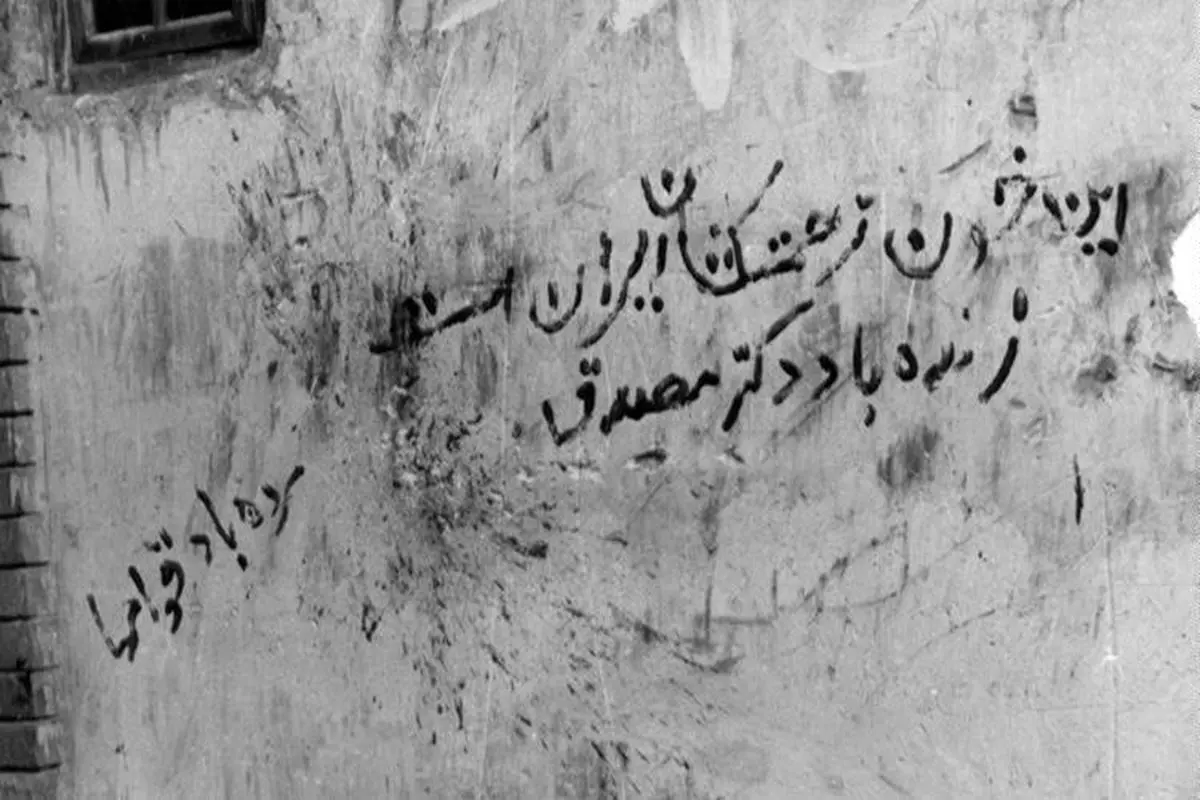 این خون زحمتکشان ایران است
زنده باد دکتر مصدق
مرده باد قوامها